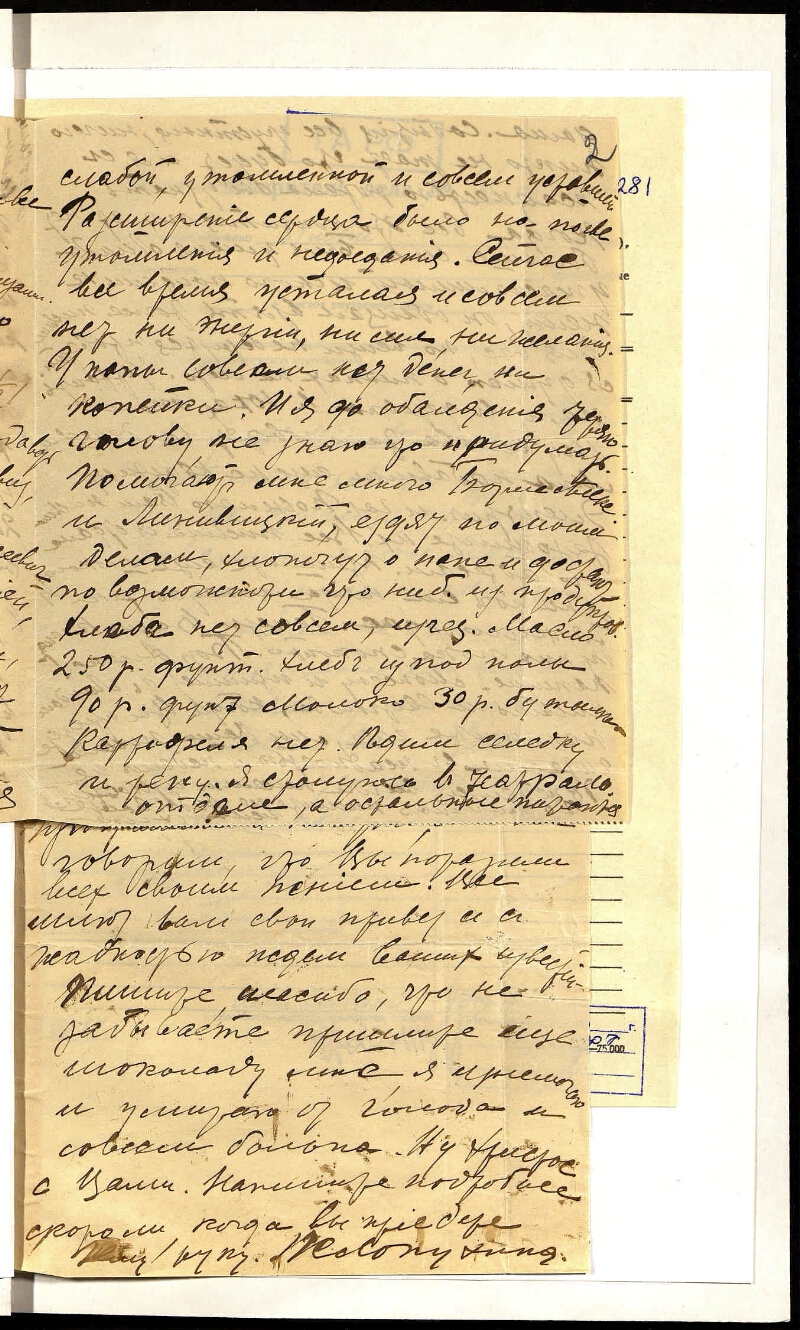 2
281
слабой, утомленной и совсем
Расширеніе сердца было на почве
утомленія и недоеданія. Сейчас
все время усталая и совсем
нет ни энергіи, ни сил, ни желанія.
У папы совсем нет денег, ни
копейки. И я до обалденія теряю
голову не знаю что придумать.
Помогают мне много
и едят по моим
делам, хлопочут о папе и достают
по возможности что ниб. из продуктов.
Хлеба нет совсем, Масло
250 р. фунт. Хлеб из под полы
90 р. фунт Молоко 30 р. бутылка
Картофеля нет. Едим селедку
и репу. Я столуюсь в театрально.
отделе, а остальные
говорили, что Вы поразили
всех своим пеніем. Все
шлют вам свои привет и с
жадностью ждем ваших известій.
Пишите спасибо, что не
забываете пришлите еще
шоколаду мне я
и умираю от голода и
совсем больна. Ну Христос
с Вами. Напишите подробнее
скоро ли когда Вы пріедете
Жму руку.
75.000
г.